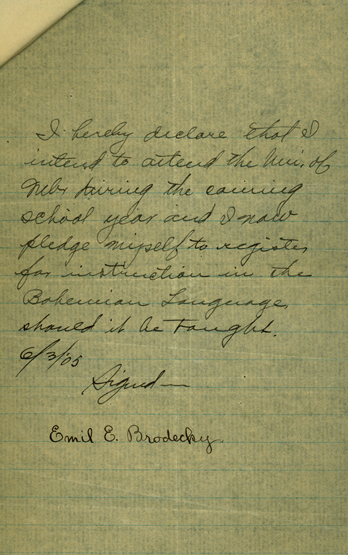 I hereby declare that I
intend to attend the Uni. of
Nebr during the coming
school year and I now
pledge myself to register
for instruction in the
Bohemian Language
should it be taught.
6/3/05
Signed
Emil E. Brodecky.